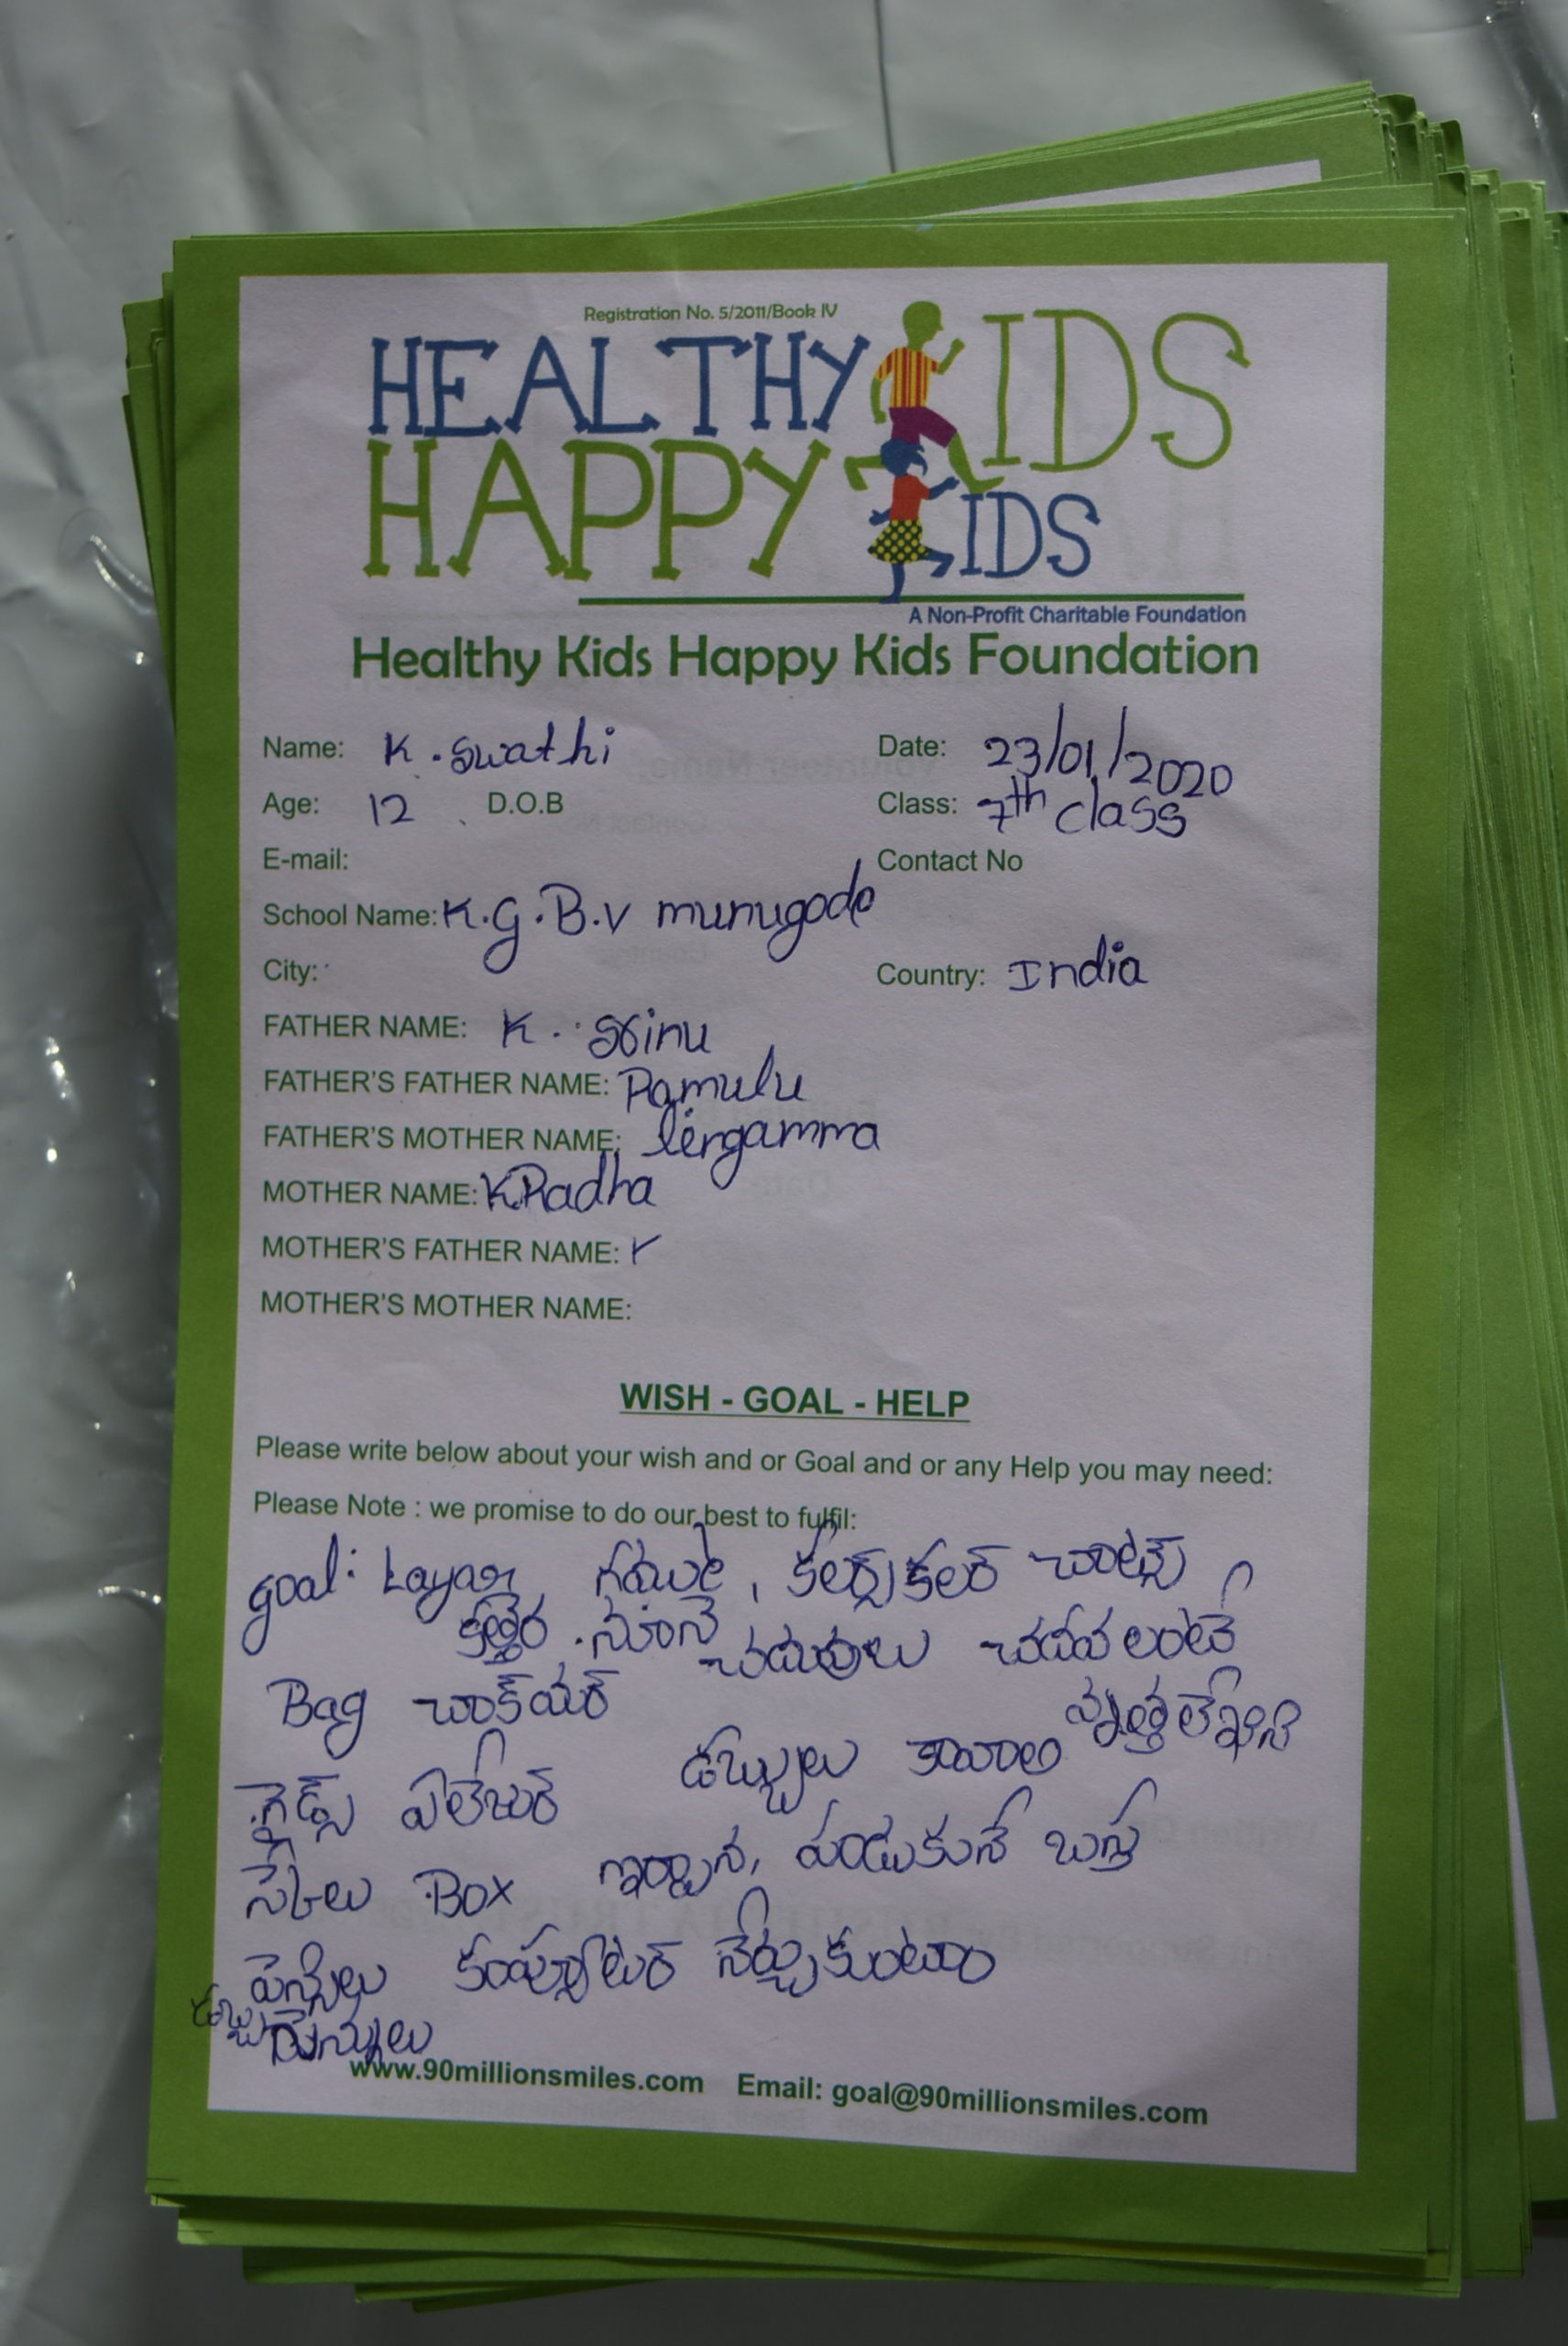 Registration No. 5/2011/Book IV
HEALTHY KIDS
HAPPY KIDS
A Non-Profit Charitable Foundation
Healthy Kids Happy Kids Foundation
Name: K. Swathi Date: 23/01/2020
Age: 12 D.O.B Class: 7th class
E-mail: Contact No
School Name: K.G.B.V munugode
City: Country: India
FATHER NAME: K. Srinu
FATHER'S FATHER NAME: Ramulu
FATHER'S MOTHER NAME: lingamma
MOTHER NAME: K Radha
MOTHER'S FATHER NAME:
MOTHER'S MOTHER NAME:
WISH - GOAL - HELP
Please write below about your wish and or Goal and or any Help you may need:
Please Note : we promise to do our best to fulfil:
goal: Layar కలర్ చార్ట్స్
కత్తెర నూనె చదువులు చదవలంటే
Bag
డబ్బులు కావాలి
Box పండుకునే
పెన్సిలు కంప్యూటర్ నేర్చుకుంటాం
పెన్నులు
www.90millionsmiles.com Email: goal@90millionsmiles.com